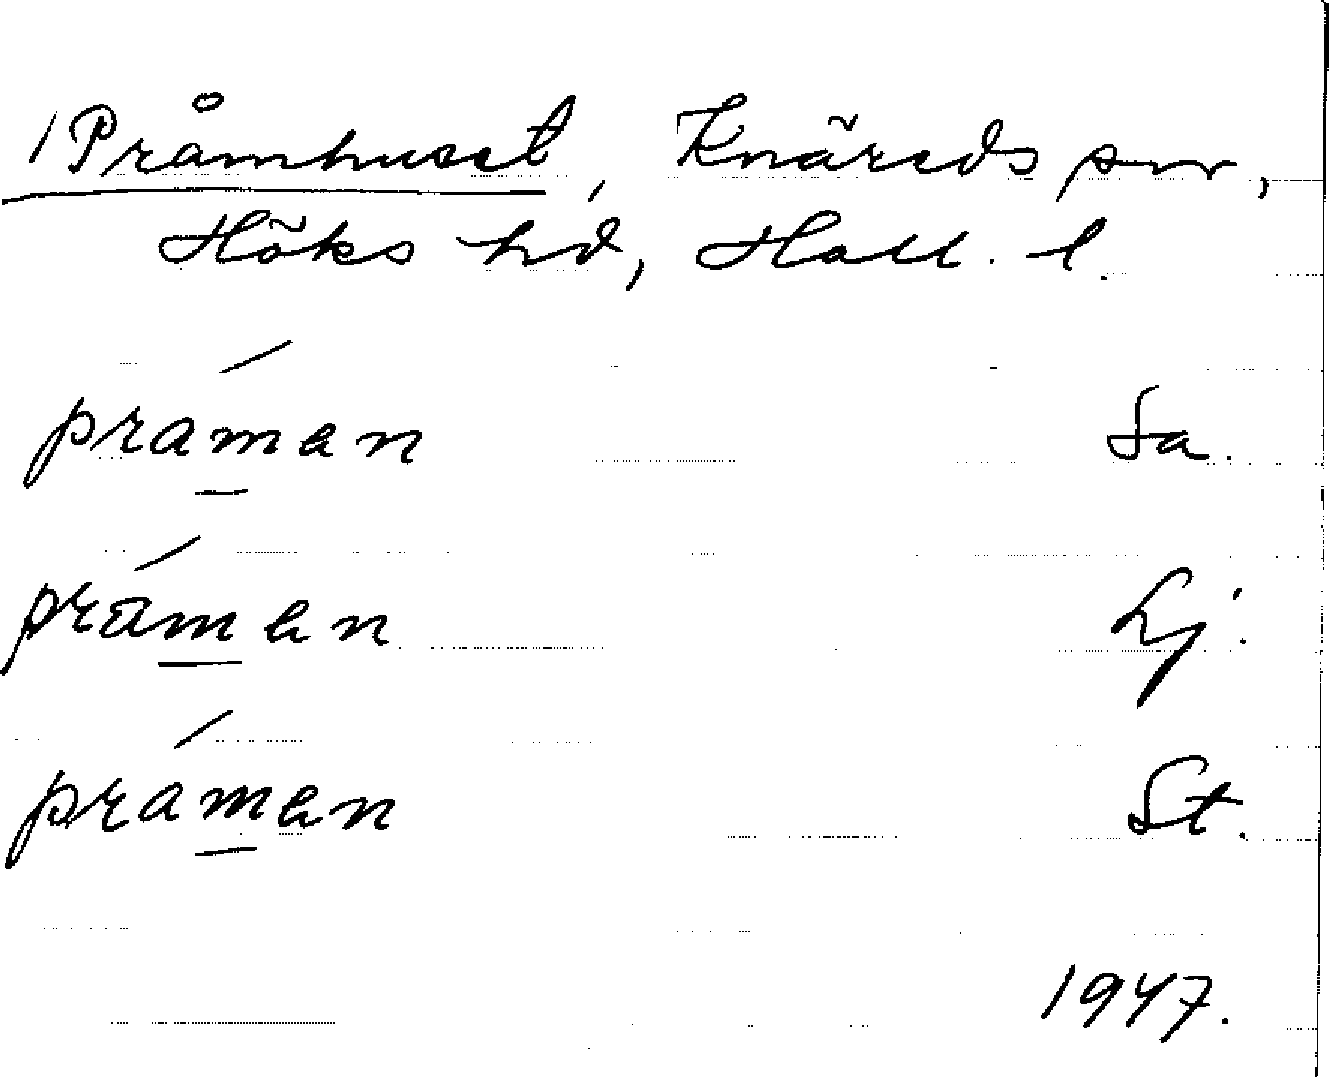 / Pråmhuset, Knäreds snr,
Höks hd, Hall. l.
práman Sa.
práman Lj.
práman St.
1947.